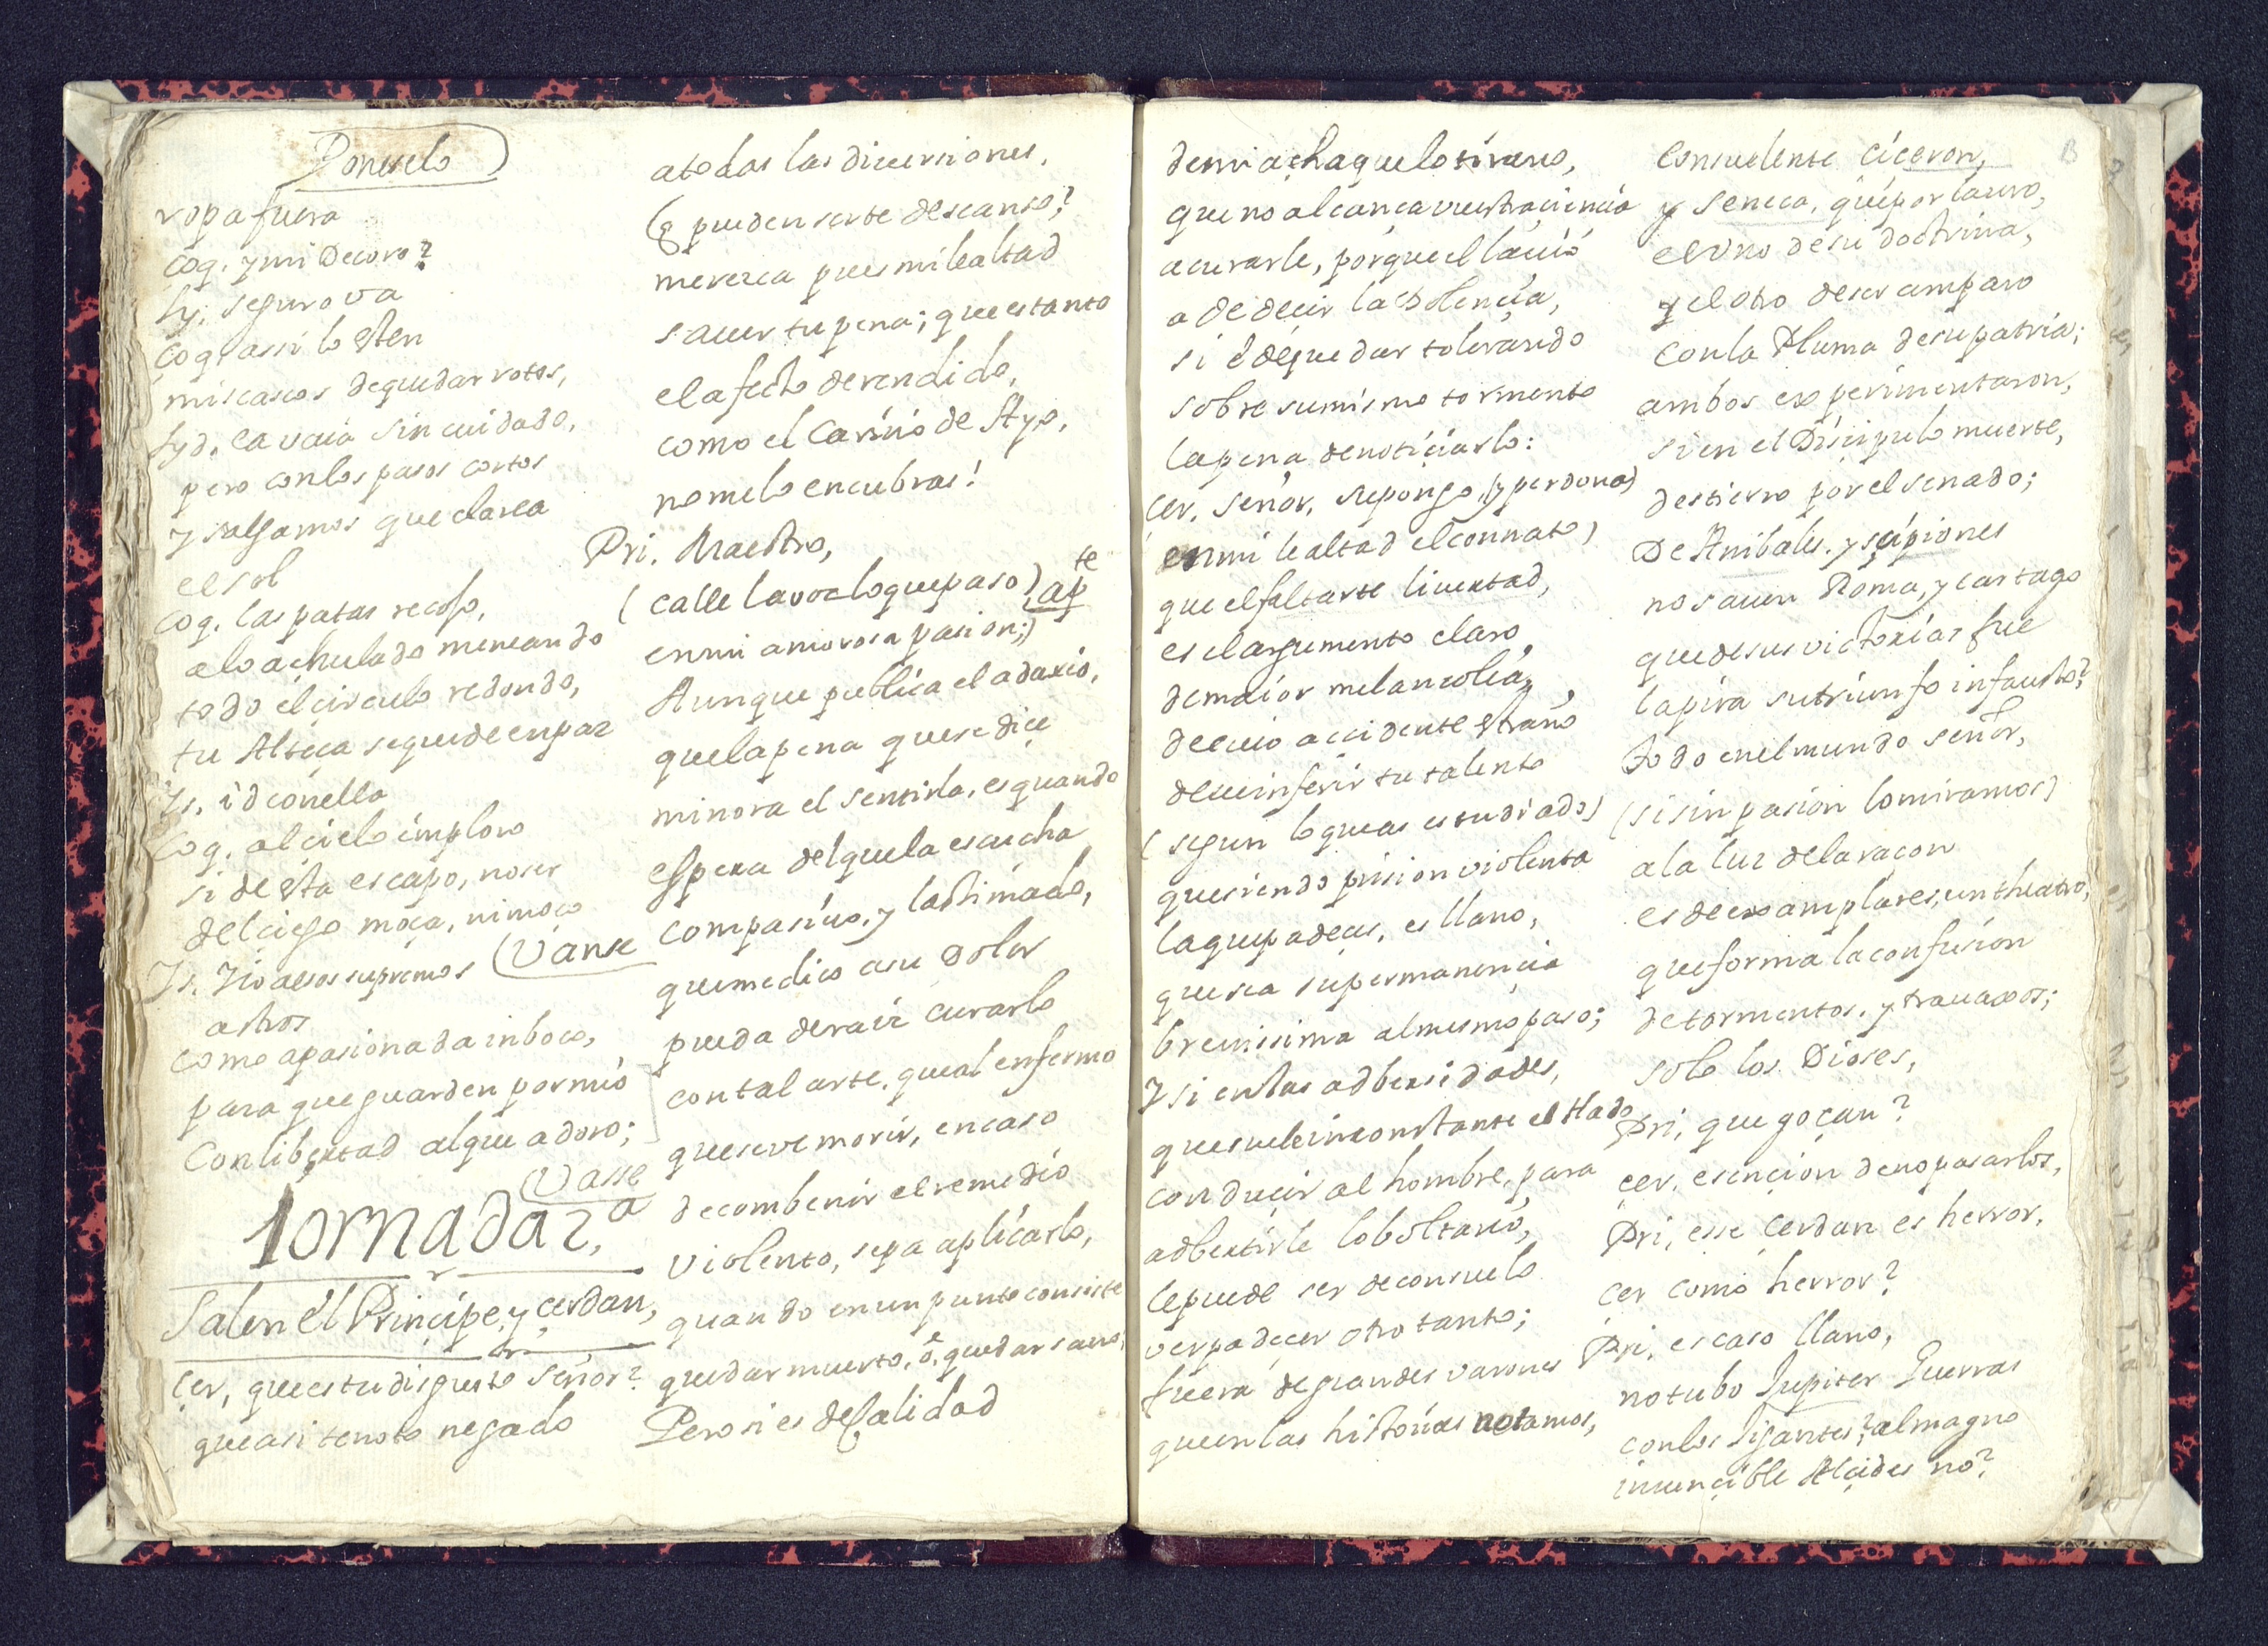 Ponerelo
ropa fuera
Coq. y mi Decoro?
Ly. seguro va
Coq. assi lo esten
mis cascos de quedar rotos,
Lyd. ea vaia sin cuidado,
pero con los pasos cortos
y salgamos que clarea
el sol
Coq. las patas recojo,
a lo achulado meneando
todo el circulo redondo,
tu Alteça se quede en paz
Ys. id con ella
Coq. al cielo imploro
si de esta escapo, no ser
del ciego moça, ni moço
Vanse
Ys. Y io a esos supremos
astros
como apasionada inboco,
para que guarden por mio
Con libertad al que adoro;
Vasse
Jornada 2.a
Salen el Principe, y cerdan,
Cer, que es tu disgusto señor?
que asi te noto negado
a todas las diuersiones,
(q pueden serte descanso?
merezca pues mi lealtad
sauer tu pena; que es tanto
el afecto de rendido,
como el Cariño de Ayo,
no me lo encubras!
Pri. Maestro,
(calle la voz lo que paso) apte
en mi amorosa pasion;)
Aunque publica el adaxio,
que la pena que se diçe
minora el sentirla, es quando
espera del que la escucha
compasiuo, y lastimado,
que medico a su Dolor
pueda de raiz curarlo
con tal arte, que al enfermo
que se ve morir, en caso
de combenir el remedio
violento, sepa aplicarlo,
quando en un punto consiste
quedar muerto, ó quedar sano;
Pero si es de Calidad
de mi achaque lo tirano,
que no alcança vuestra ciencia
a curarle, porque el lauio
a de decir la Dolencia,
si é de quedar tolerando
sobre su mismo tormento
la pena de noticiarlo:
Cer. Señor, supongo, (y perdona)
en mi lealtad el connato)
que el faltarte liuertad,
es el argumento claro,
de maior melancolia,
de cuio accidente estraño
deue inferir tu talento
(segun lo que as estudiado)
que siendo prision violenta
la que padeces, es llano,
que sea su permanencia
breuisima al mismo paso;
Y si en las adbersidades,
que suele inconstante el Hado
conducir al hombre, para
adbertirle lo boltario,
le puede ser de consuelo
ver padecer otro tanto;
fuera de grandes varones
que en las historias notamos,
Consuelente Ciceron,
y Seneca, que por lauro,
el vno de su doctrina,
y el otro de ser amparo
con la Pluma de su patria;
ambos experimentaron,
si en el Discipulo muerte,
destierro por el senado;
De Anibales, y sçipiones
no sauen Roma, y cartago
que de sus victorias fue
la pira su triunfo infausto?
todo en el mundo señor,
(si sin pasion lo miramos)
a la luz de la raçon
es de exsamplares, un theatro,
que forma la confusion
de tormentos, y trauaxos;
solo los Dioses,
Pri, que goçan?
cer, esencion de no pasarlos,
Pri, esse Cerdan es herror,
Cer como herror?
Pri, es caso llano,
no tubo Jupiter Guerras
con los Jigantes? al magno
inuencible Alcides no?